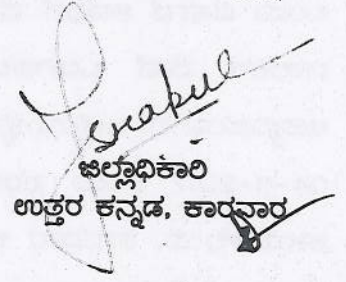 ಜಿಲ್ಲಾಧಿಕಾರಿ
ಉತ್ತರ ಕನ್ನಡ, ಕಾರವಾರ